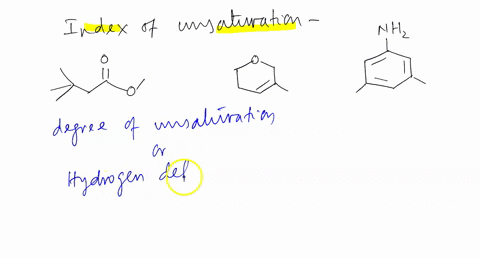 Index of unsaturation -
NH₂
O
O
O
degree of unsaturation
or
Hydrogen def